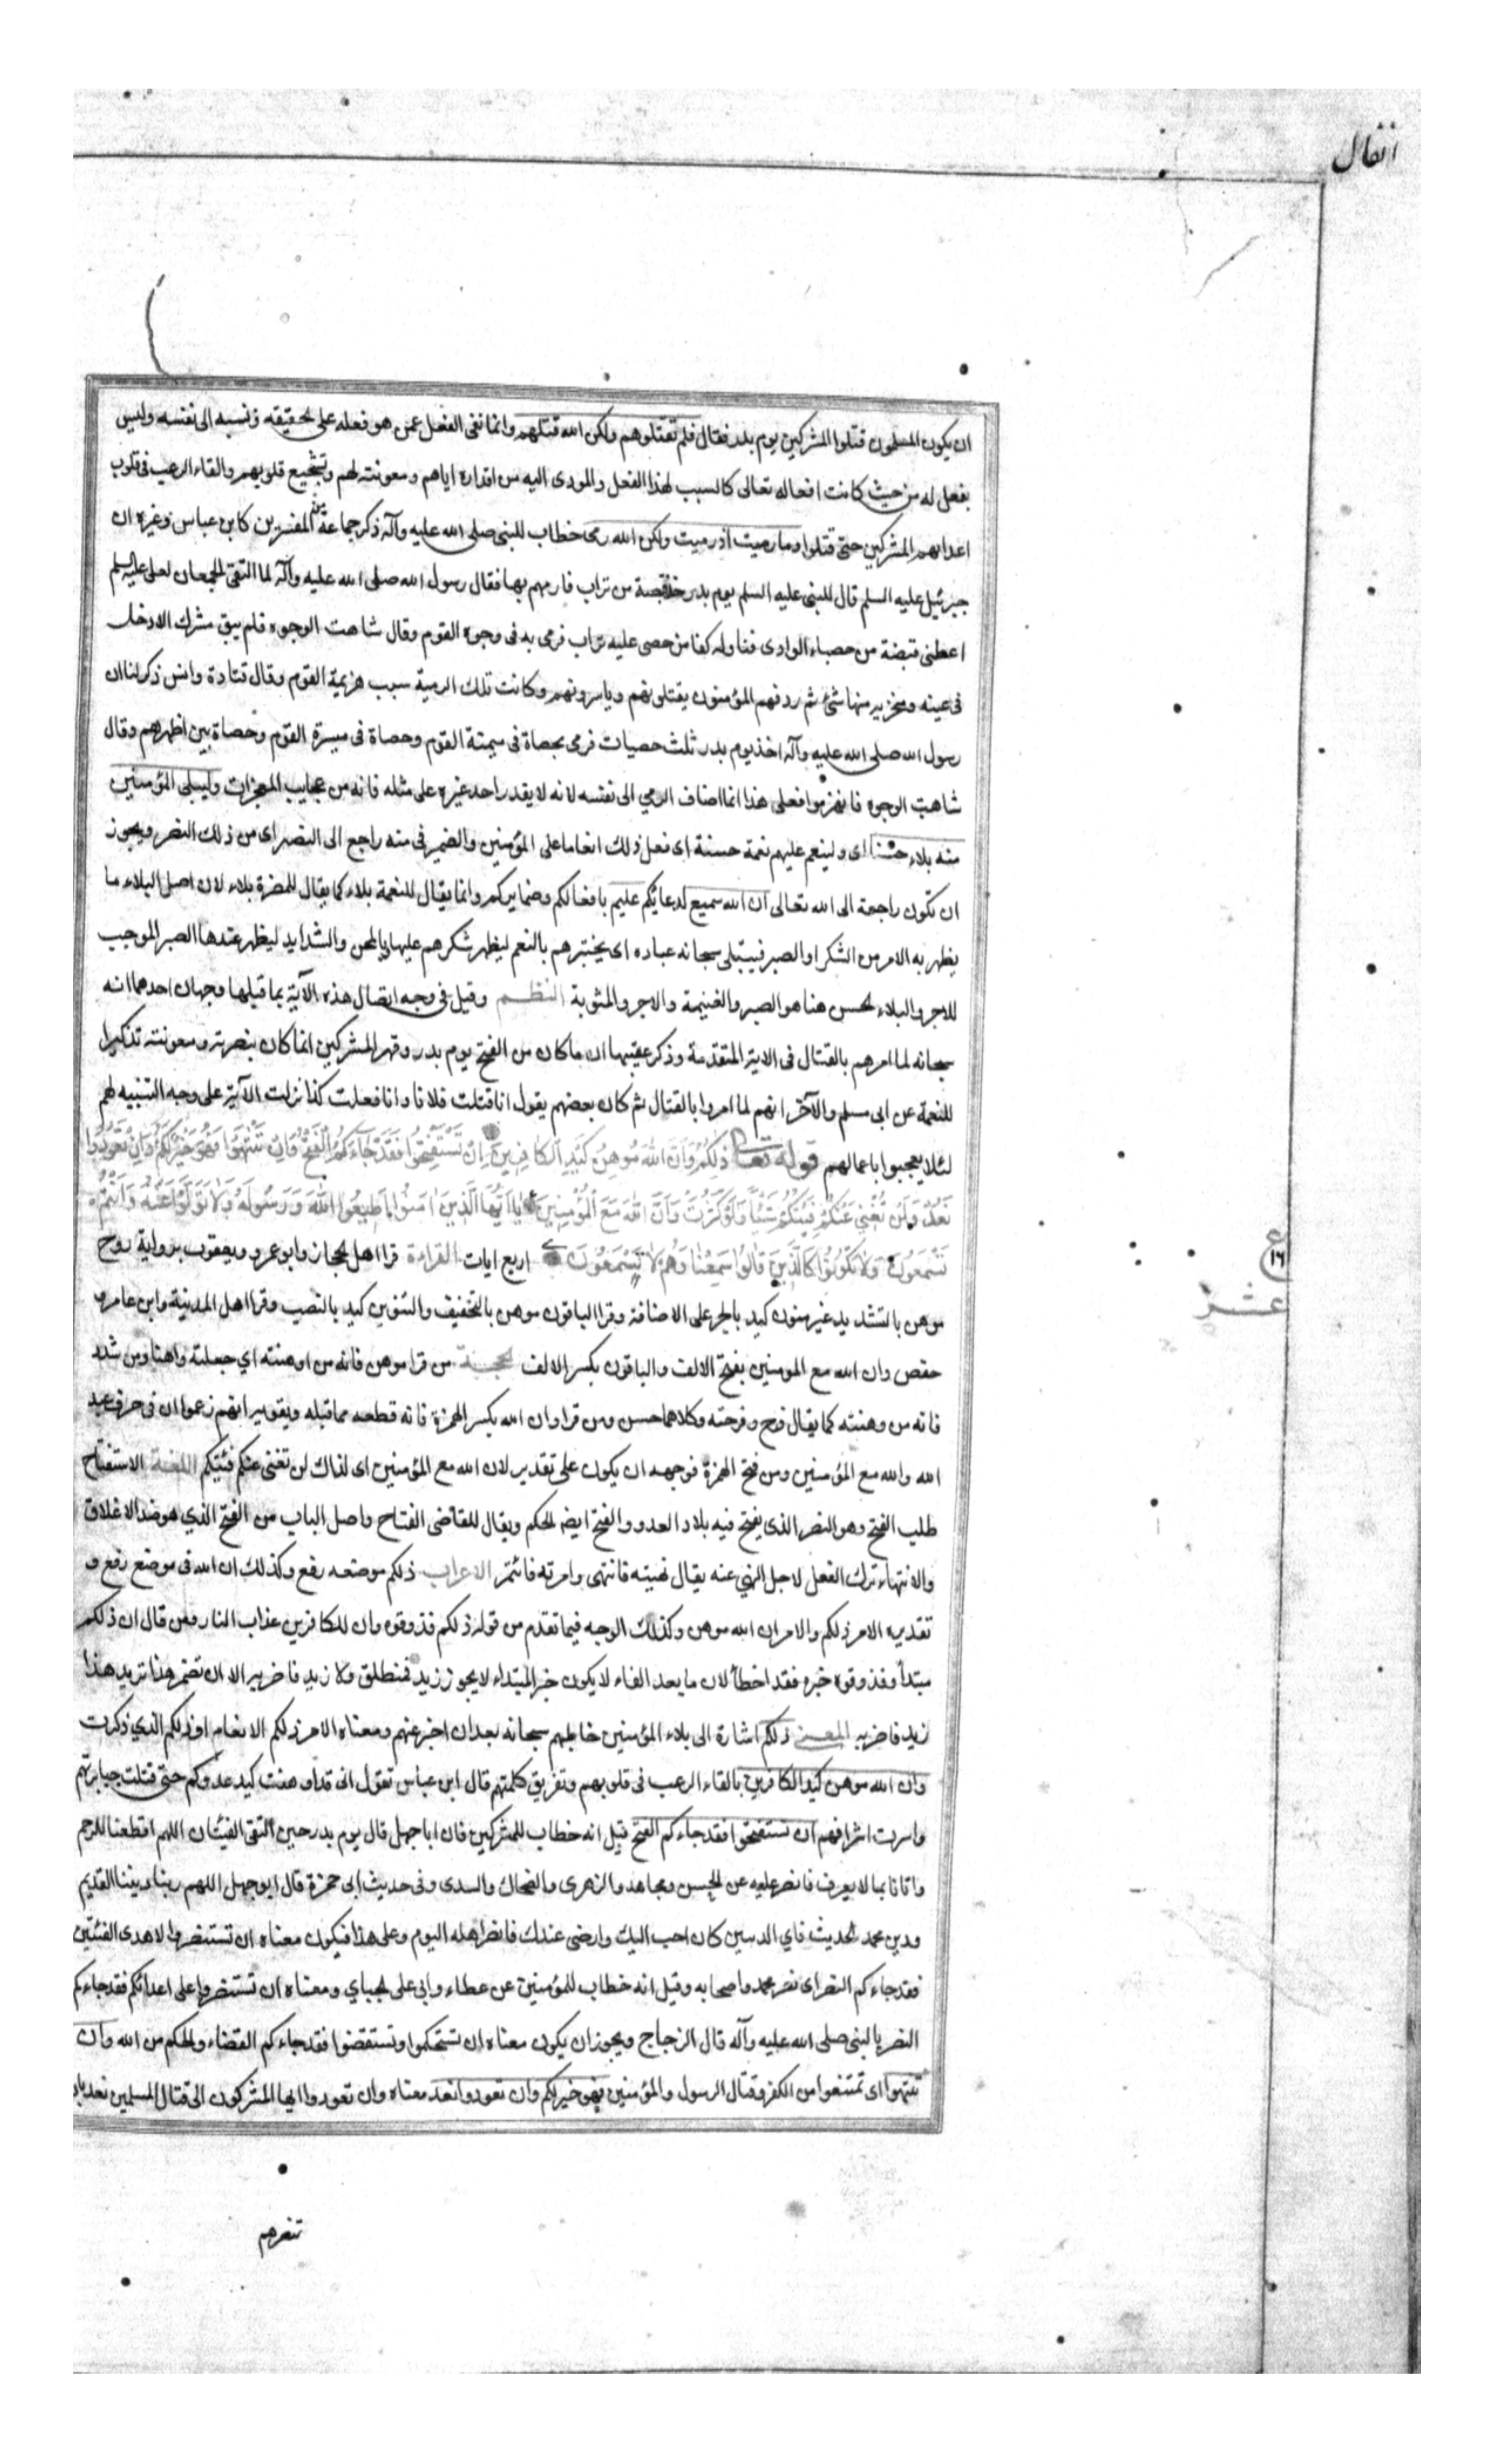 انفال
ان يكون المسلمون قتلوا المشركين يوم بدر فقال فلم تقتلوهم ولكن الله قتلهم وانما نفى الفعل عمن هو فعله على الحقيقه ونسبه الى نفسه وليس
بفعل له من حيث كانت افعاله تعالى كالسبب لهذا الفعل والمودى اليه من اقداره اياهم ومعونته لهم وتشجيع قلوبهم والقاء الرعب فى قلوب
اعدائهم المشركين حتى قتلوا وما رميت اذ رميت ولكن الله رمى خطاب للنبى صلى الله عليه وآله ذكر جماعة من المفسرين كابن عباس وغيره ان
جبرئيل عليه السلم قال للنبى عليه السلم يوم بدر خذ قبضة من تراب فارمهم بها فقال رسول الله صلى الله عليه وآله لما التقى الجمعان لعلى عليه السلم
اعطنى قبضة من حصباء الوادى فناوله كفا من حصى عليه تراب فرمى به فى وجوه القوم وقال شاهت الوجوه فلم يبق مشرك الا دخل
فى عينه ومنخريه منها شئ ثم ردفهم المؤمنون يقتلونهم وياسرونهم وكانت تلك الرمية سبب هزيمة القوم وقال قتادة وانس ذكر لنا ان
رسول الله صلى الله عليه وآله اخذ يوم بدر ثلث حصيات فرمى بحصاة فى ميمنة القوم وحصاة فى ميسرة القوم وحصاة بين اظهرهم وقال
شاهت الوجوه فانهزموا فعلى هذا انما اضاف الرمي الى نفسه لانه لا يقدر احد غيره على مثله فانه من عجايب المعجزات وليبلى المؤمنين
منه بلاء حسنا اى ولينعم عليهم نعمة حسنة اى فعل ذلك انعاما على المؤمنين والضمير فى منه راجع الى النصر اى من ذلك النصر ويجوز
ان تكون راجعة الى الله تعالى ان الله سميع لدعائكم عليم بافعالكم وضمايركم وانما يقال للنعمة بلاء كما يقال للمضرة بلاء لان اصل البلاء ما
يظهر به الامر من الشكر او الصبر فيبتلى سبحانه عباده اى يختبرهم بالنعم ليظهر شكرهم عليها وبالمحن والشدايد ليظهر عندها الصبر الموجب
للاجر والبلاء الحسن هنا هو النصر والغنيمة والاجر والمثوبة النظم وقيل فى وجه اتصال هذه الآية بما قبلها وجهان احدهما انه
سبحانه لما امرهم بالقتال فى الاية المتقدمة وذكر عقيبها ان ما كان من الفتح يوم بدر وقهر المشركين انما كان بنصرته ومعونته تذكيرا
للنعمة عن ابى مسلم والآخر انهم لما امروا بالقتال ثم كان بعضهم يقول انا قتلت فلانا وانا فعلت كذا نزلت الآية على وجه التنبيه لهم
لئلا يعجبوا باعمالهم قوله تعالى ذٰلِكُمْ وَاَنَّ اللهَ مُوهِنُ كَيْدِ الْكَافِرِينَ اِنْ تَسْتَفْتِحُوا فَقَدْ جَاءَكُمُ الْفَتْحُ وَاِنْ تَنْتَهُوا فَهُوَ خَيْرٌ لَكُمْ وَاِنْ تَعُودُوا
نَعُدْ وَلَنْ تُغْنِيَ عَنْكُمْ فِئَتُكُمْ شَيْئًا وَلَوْ كَثُرَتْ وَاَنَّ اللهَ مَعَ الْمُؤْمِنِينَ يَا اَيُّهَا الَّذِينَ اٰمَنُوا اَطِيعُوا اللهَ وَرَسُولَهُ وَلَا تَوَلَّوْا عَنْهُ وَاَنْتُمْ
تَسْمَعُونَ وَلَا تَكُونُوا كَالَّذِينَ قَالُوا سَمِعْنَا وَهُمْ لَا يَسْمَعُونَ اربع ايات القراءة قرا اهل الحجاز وابو عمرو ويعقوب برواية روح
موهن بالتشديد غير منون كيد بالجر على الاضافة وقرا الباقون موهن بالتخفيف والتنوين كيد بالنصب وقرا اهل المدينة وابن عامر و
حفص وان الله مع المومنين بفتح الالف والباقون بكسر الالف الحجة من قرا موهن فانه من اوهنته اي جعلته واهنا ومن شدد
فانه من وهنته كما يقال فرح وفرحته وكلاهما حسن ومن قرا وان الله بكسر الهمزة فانه قطعه مما قبله ويقويه انهم زعموا ان فى حرف عبد
الله والله مع المؤمنين ومن فتح الهمزة فوجهه ان يكون على تقدير لان الله مع المؤمنين اى لذلك لن تغنى عنكم فئتكم اللغة الاستفتاح
طلب الفتح وهو النصر الذى يفتح فيه بلاد العدو والفتح ايضه الحكم ويقال للقاضى الفتاح واصل الباب من الفتح الذي هو ضد الاغلاق
والانتهاء ترك الفعل لاجل النهي عنه يقال نهيته فانتهى وامرته فائتمر الاعراب ذلكم موضعه رفع وكذلك ان الله فى موضع رفع و
تقديره الامر ذلكم والامر ان الله موهن وكذلك الوجه فيما تقدم من قوله ذلكم فذوقوه وان للكافرين عذاب النار ومن قال ان ذلكم
مبتدأ وفذوقوه خبره فقد اخطأ لان ما بعد الفاء لا يكون خبر المبتداء لا يجوز زيد فمنطلق ولا زيد فاضربه الا ان تضمر هذا تريد هذا
زيد فاضربه المعنى ذلكم اشارة الى بلاء المؤمنين خاطبهم سبحانه بعد ان اخبر عنهم ومعناه الامر ذلكم الانعام او ذلكم الذي ذكرت
وان الله موهن كيد الكافرين بالقاء الرعب فى قلوبهم وتفريق كلمتهم قال ابن عباس تقول انى قد اوهنت كيد عدوكم حتى قتلت جبابرتهم
واسرت اشرافهم ان تستفتحوا فقد جاءكم الفتح قيل انه خطاب للمشركين فان ابا جهل قال يوم بدر حين التقى الفئتان اللهم اقطعنا للرحم
واتانا بما لا يعرف فانصر عليه عن الحسن ومجاهد والزهرى والضحاك والسدى وفى حديث ابى حمزة قال ابو جهل اللهم ربنا ديننا القديم
ودين محمد الحديث فاي الدينين كان احب اليك وارضى عندك فانصر اهله اليوم وعلى هذا فيكون معناه ان تستنصروا لاهدى الفئتين
فقد جاءكم النصر اى نصر محمد واصحابه وقيل انه خطاب للمؤمنين عن عطاء وابى على الجباي ومعناه ان تستنصروا على اعدائكم فقد جاءكم
النصر بالنبى صلى الله عليه وآله قال الزجاج ويجوز ان يكون معناه ان تستحكموا وتستقضوا فقد جاءكم القضاء والحكم من الله وان
تنتهوا اى تمتنعوا من الكفر وقتال الرسول والمؤمنين فهو خير لكم وان تعودوا نعد معناه وان تعودوا ايها المشركون الى قتال المسلمين نعد بان
ع
١٦
عشر
ننصرهم